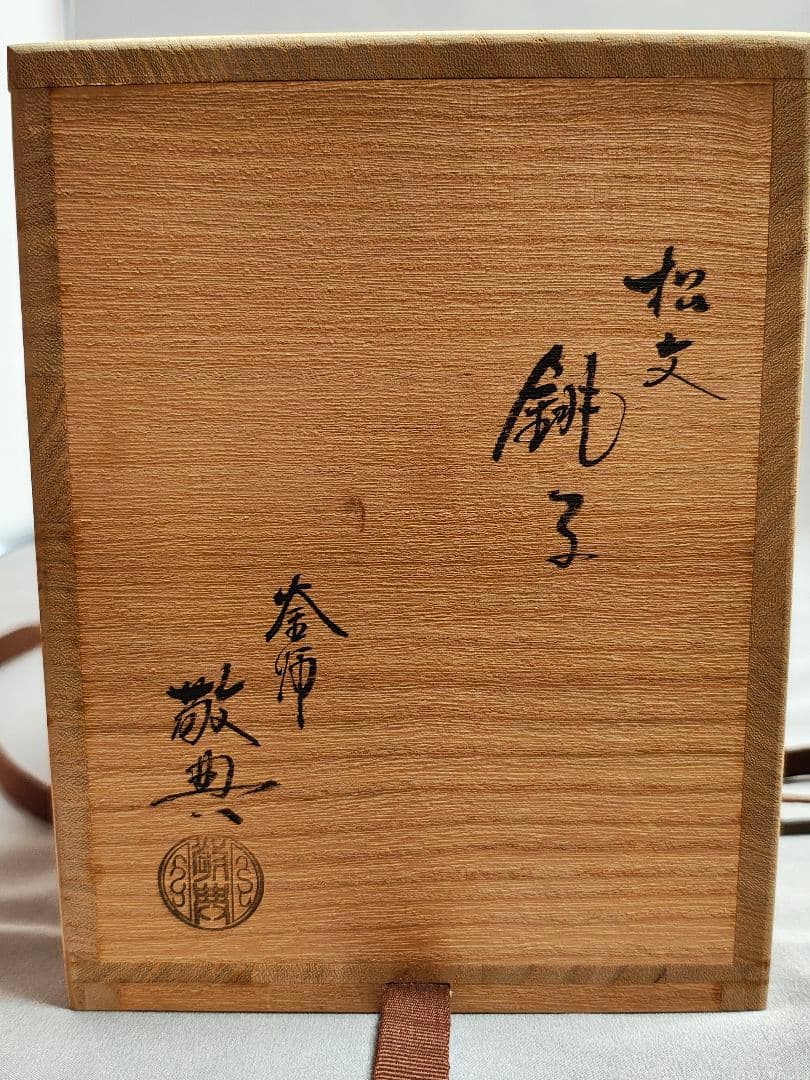 松文
銚子
釜師
敬典
敬典